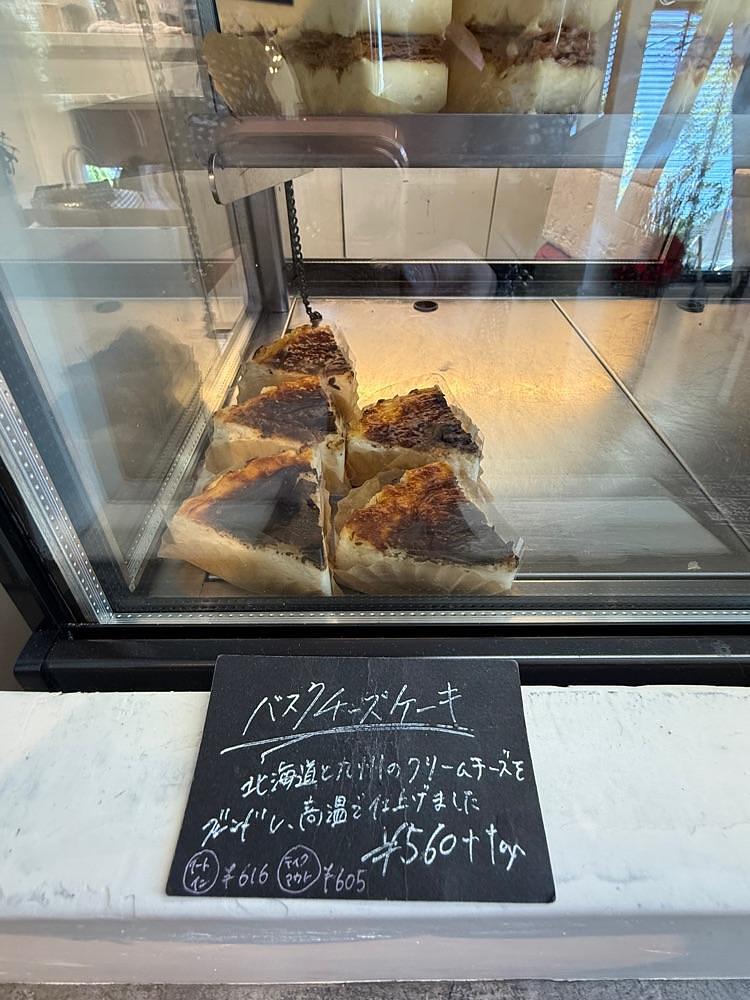 バスクチーズケーキ
北海道と九州のクリームチーズを
ブレンドし、高温で仕上げました
¥560+tax
イートイン ¥616 テイクアウト ¥605